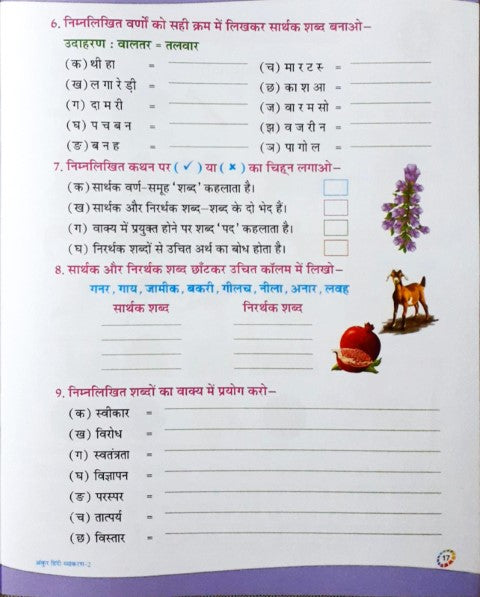 6. निम्नलिखित वर्णों को सही क्रम में लिखकर सार्थक शब्द बनाओ–
उदाहरण : वालतर = तलवार
(क) थी हा =
(च) मा र ट स् =
(ख) ल गा रे ड़ी =
(छ) का श आ =
(ग) दा म री =
(ज) वा र म सो =
(घ) प च ब न =
(झ) व ज री न =
(ङ) ब न ह =
(ञ) पा गो ल =
7. निम्नलिखित कथन पर ( ✓ ) या ( × ) का चिह्न लगाओ–
(क) सार्थक वर्ण-समूह 'शब्द' कहलाता है।
(ख) सार्थक और निरर्थक शब्द–शब्द के दो भेद हैं।
(ग) वाक्य में प्रयुक्त होने पर शब्द 'पद' कहलाता है।
(घ) निरर्थक शब्दों से उचित अर्थ का बोध होता है।
8. सार्थक और निरर्थक शब्द छाँटकर उचित कॉलम में लिखो–
गनर, गाय, जामीक, बकरी, गीलच, नीला, अनार, लवह
सार्थक शब्द निरर्थक शब्द
9. निम्नलिखित शब्दों का वाक्य में प्रयोग करो–
(क) स्वीकार =
(ख) विरोध =
(ग) स्वतंत्रता =
(घ) विज्ञापन =
(ङ) परस्पर =
(च) तात्पर्य =
(छ) विस्तार =
अंकुर हिंदी व्याकरण-2
17